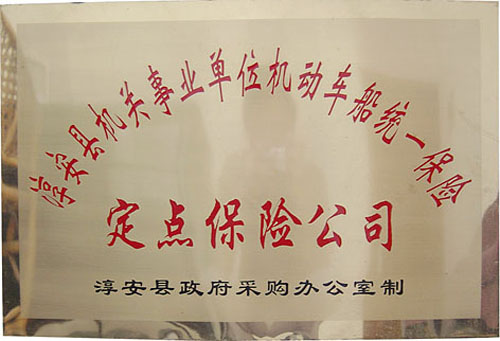 淳安县机关事业单位机动车船统一保险
定点保险公司
淳安县政府采购办公室制